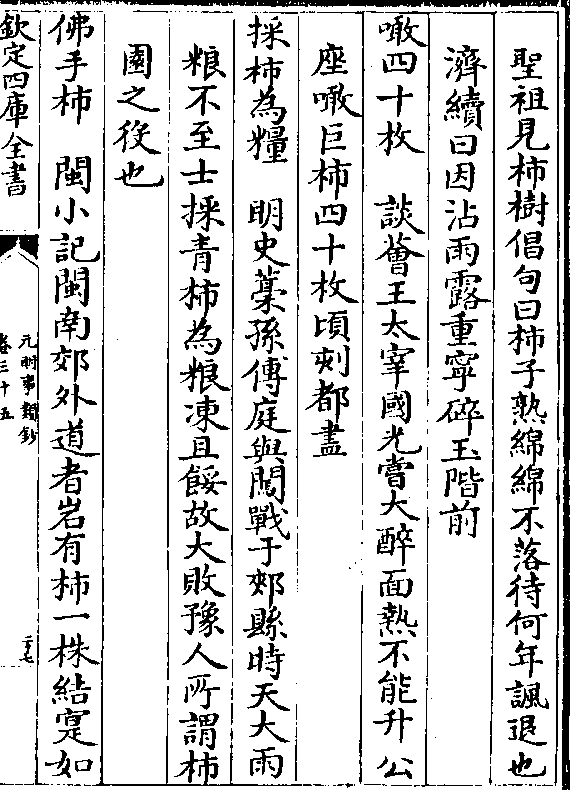 聖祖見柿樹倡句曰柿子熟綿綿不落待何年諷退也
濟續曰因沾雨露重寧碎玉階前
噉四十枚　談薈王太宰國光嘗大醉面熱不能升公
座噉巨柿四十枚頃刻都盡
採柿為糧　明史藁孫傳庭與闖戰于郟縣時天大雨
粮不至士採青柿為粮凍且餒故大敗豫人所謂柿
園之役也
佛手柿　閩小記閩南郊外道者岩有柿一株結寔如
欽定四庫全書
元明事類鈔
卷三十五
二十七